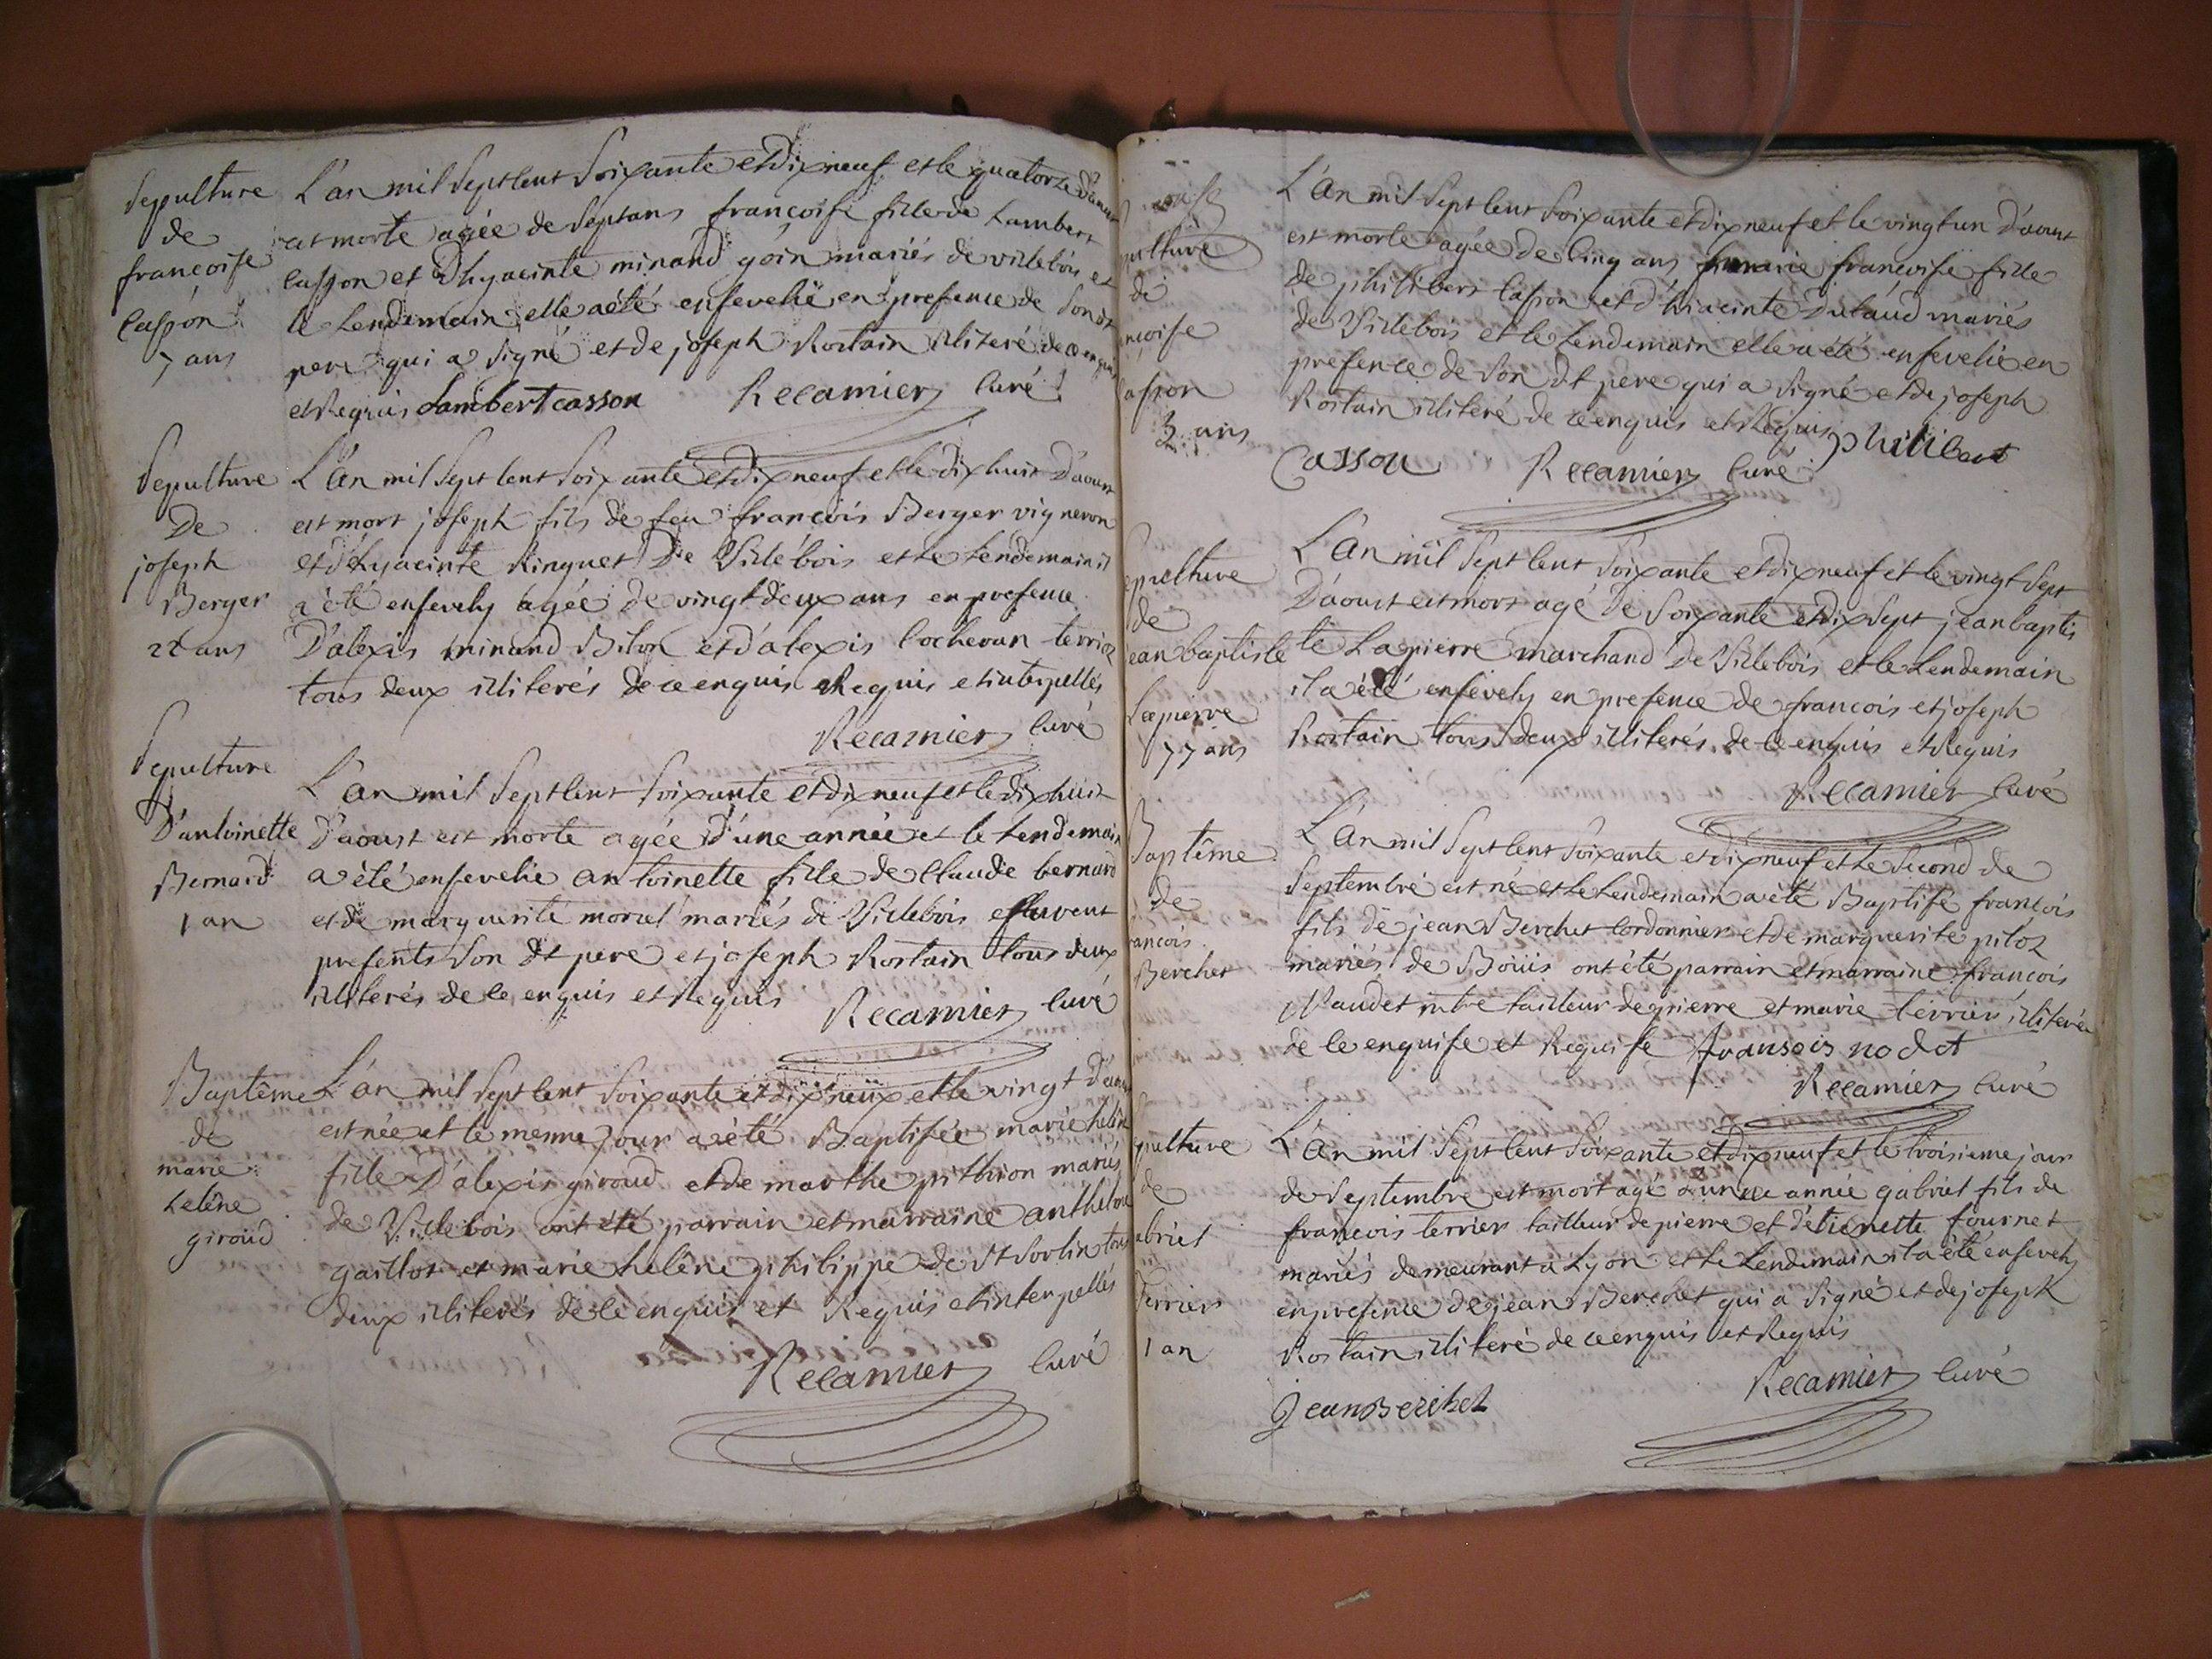 Sepulture
de
françoise
Casson
7 ans
L'an mil Sept Cent Soixante et dix neuf et le quatorze d'aoust
est morte agée de Sept ans françoise fille de Lambert
Casson et d'hyacinte minand goin mariés de villebois et
le Lendemain elle a été ensevelie en presence de Son dt
pere qui a Signé et de joseph Rostain illiteré de ce enquis
et Requis Lambert casson Recamier Curé
Sepulture
De
joseph
Berger
22 ans
L'an mil Sept Cent Soixante et dix neuf et le dix huit D'aoust
est mort joseph fils de feu françois Berger vigneron
et d'hyacinte Ringuet De Villebois et le Lendemain il
a été ensevely agée de vingt deux ans en presence
D'alexis minand Bilon et d'alexis Cocheran terrier
tous deux illiterés de ce enquis Requis et interpellés
Recamier Curé
Sepulture
D'antoinette
Bernard
1 an
L'an mil Sept Cent Soixante et dix neuf et le dix huit
D'aoust est morte agée d'une année et le Lendemain
a été ensevelie antoinette fille de Claude bernard
et de marguerite morel mariés de Villebois furent
presents Son dt pere et joseph Rostain tous deux
illiterés de ce enquis et Requis Recamier Curé
Baptême
de
marie
helêne
giroud
L'an mil Sept Cent Soixante et dix neuf et le vingt d'aoust
est née et le meme jour a été Baptisée marie helêne
fille D'alexis giroud et de marthe pithion mariés
de Villebois ont été parrain et marraine anthelme
gaillot et marie helêne philippe de St Sorlin tous
deux illiterés de ce enquis et Requis et interpellés
Recamier Curé
pulture
de
nçoise
asson
3 ans
L'an mil Sept Cent Soixante et dix neuf et le vingt un D'aoust
est morte agée de Cinq ans marie françoise fille
de philibert Casson et d'hiacinte Dutaud mariés
de Villebois et le Lendemain elle a été ensevelie en
presence de Son dt pere qui a Signé et de joseph
Rostain illiteré de ce enquis et Requis philibert
Casson Recamier Curé
epulture
de
ean baptiste
Lapierre
77 ans
L'an mil Sept Cent Soixante et dix neuf et le vingt Sept
D'aoust est mort agé de Soixante et dix Sept jean baptis
te Lapierre marchand de Villebois et le Lendemain
il a été ensevely en presence de francois et joseph
Rostain tous deux illiterés de ce enquis et Requis
Recamier Curé
Baptême
de
ancois
Berchet
L'an mil Sept Cent Soixante et dix neuf et le Second de
Septembre est né et le Lendemain a été Baptisé françois
fils de jean Berchet Cordonnier et de marguerite piloz
mariés de Boüis ont été parrain et marraine françois
Naudet mtre tailleur de pierre et marie terrier illiterée
de ce enquise et Requise fransois nodet
Recamier Curé
pulture
de
abriel
Terrier
1 an
L'an mil Sept Cent Soixante et dix neuf et le troisieme jour
de Septembre est mort agé d'une année gabriel fils de
françois terrier tailleur de pierre et d'étienette fournet
mariés demeurant a Lyon et le Lendemain il a été ensevely
en presence de jean Berchet qui a Signé et de joseph
Rostain illiteré de ce enquis et Requis
Recamier Curé
Jean Berchet